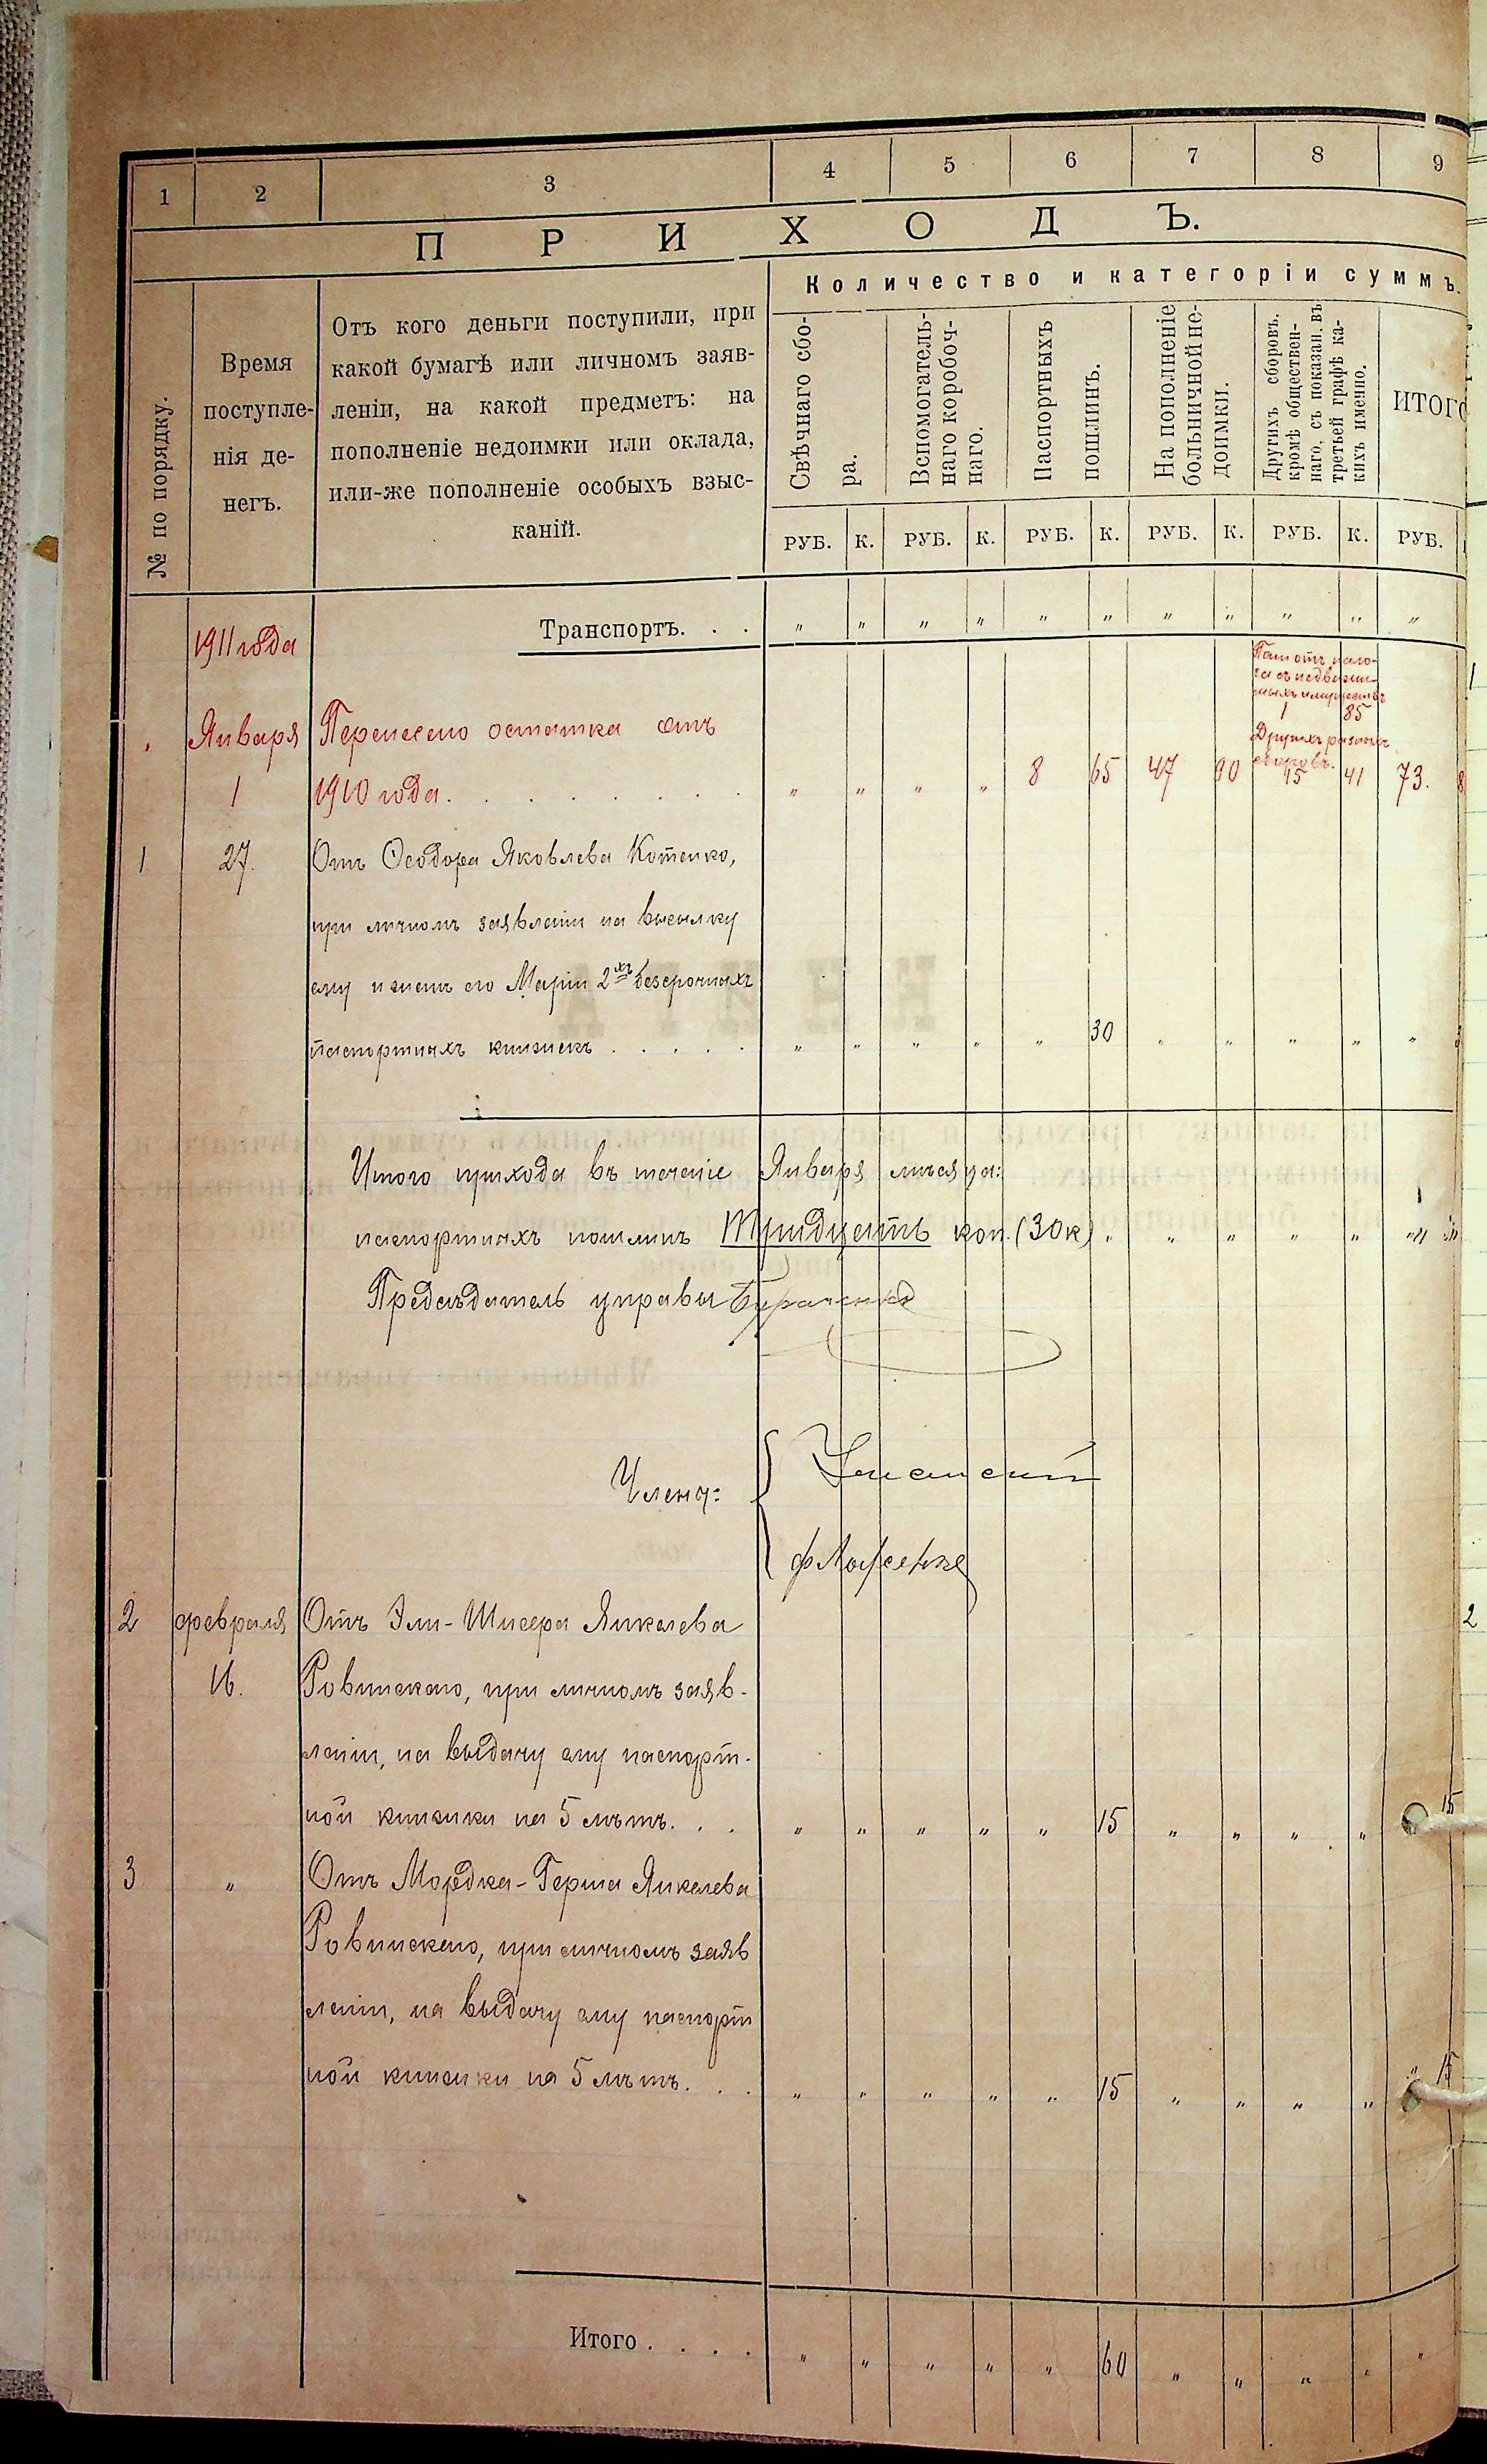 1 2 3 4 5 6 7 8 9
ПРИХОДЪ.
№ по порядку.
Время
поступле-
нія де-
негъ.
Отъ кого деньги поступили, при
какой бумагѣ или личномъ заяв-
леніи, на какой предметъ: на
пополненіе недоимки или оклада,
или-же пополненіе особыхъ взыс-
каній.
Количество и категоріи суммъ.
Свѣчнаго сбо-
ра.
Вспомогатель-
наго коробоч-
наго.
Паспортныхъ
пошлинъ.
На пополненіе
больничной не-
доимки.
Другихъ сборовъ,
кромѣ обществен-
наго, съ показан. въ
третьей графѣ ка-
кихъ именно.
ИТОГО
РУБ. К. РУБ. К. РУБ. К. РУБ. К. РУБ. К. РУБ.
1911 года
Транспортъ. . . " " " " " " " " " " "
нало-
га съ недвижи-
мыхъ имуществъ
1 85
Января Перенесено остатка отъ
Другихъ
сборовъ.
1 1910 года. . . . . . . . " " " " 8 65 47 90 15 41 73.
1 27. Отъ Ѳеодора Яковлева Котенко,
при личномъ заявленіи на высылку
ему и женѣ его Маріи 2хъ безсрочныхъ
паспортныхъ книжекъ . . . . . " " " " " 30 " " " " "
Итого прихода въ теченіе Января мѣсяца:
паспортныхъ пошлинъ Тридцать коп. (30 к) " " " " "
Предсѣдатель управы
Члены:
2 февраля Отъ Эли-Шисера Янкелева
16. Ровинскаго, при личномъ заяв-
леніи, на выдачу ему паспорт-
ной книжки на 5 лѣтъ. . . " " " " " 15 " " " " 15
3 " Отъ Мордка-Герша Янкелева
Ровинскаго, при личномъ заяв
леніи, на выдачу ему паспорт
ной книжки на 5 лѣтъ. . . " " " " " 15 " " " " " 15
Итого . . . . " " " " " 60 " " " " "